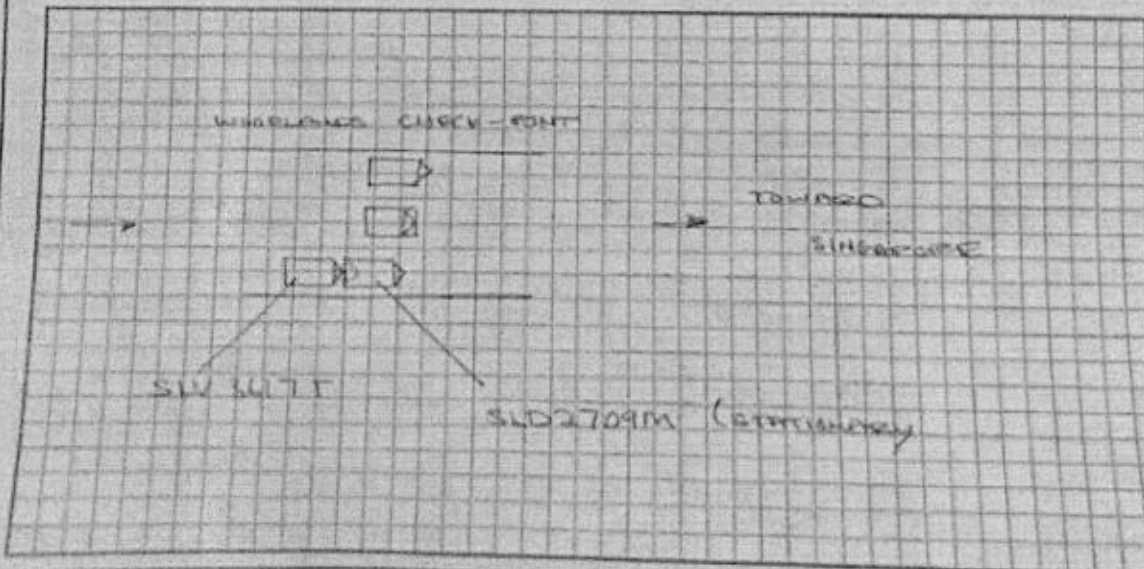 WOODLANDS CHECK-POINT
TOWARD
SINGAPORE
SLD2709M (STATIONARY